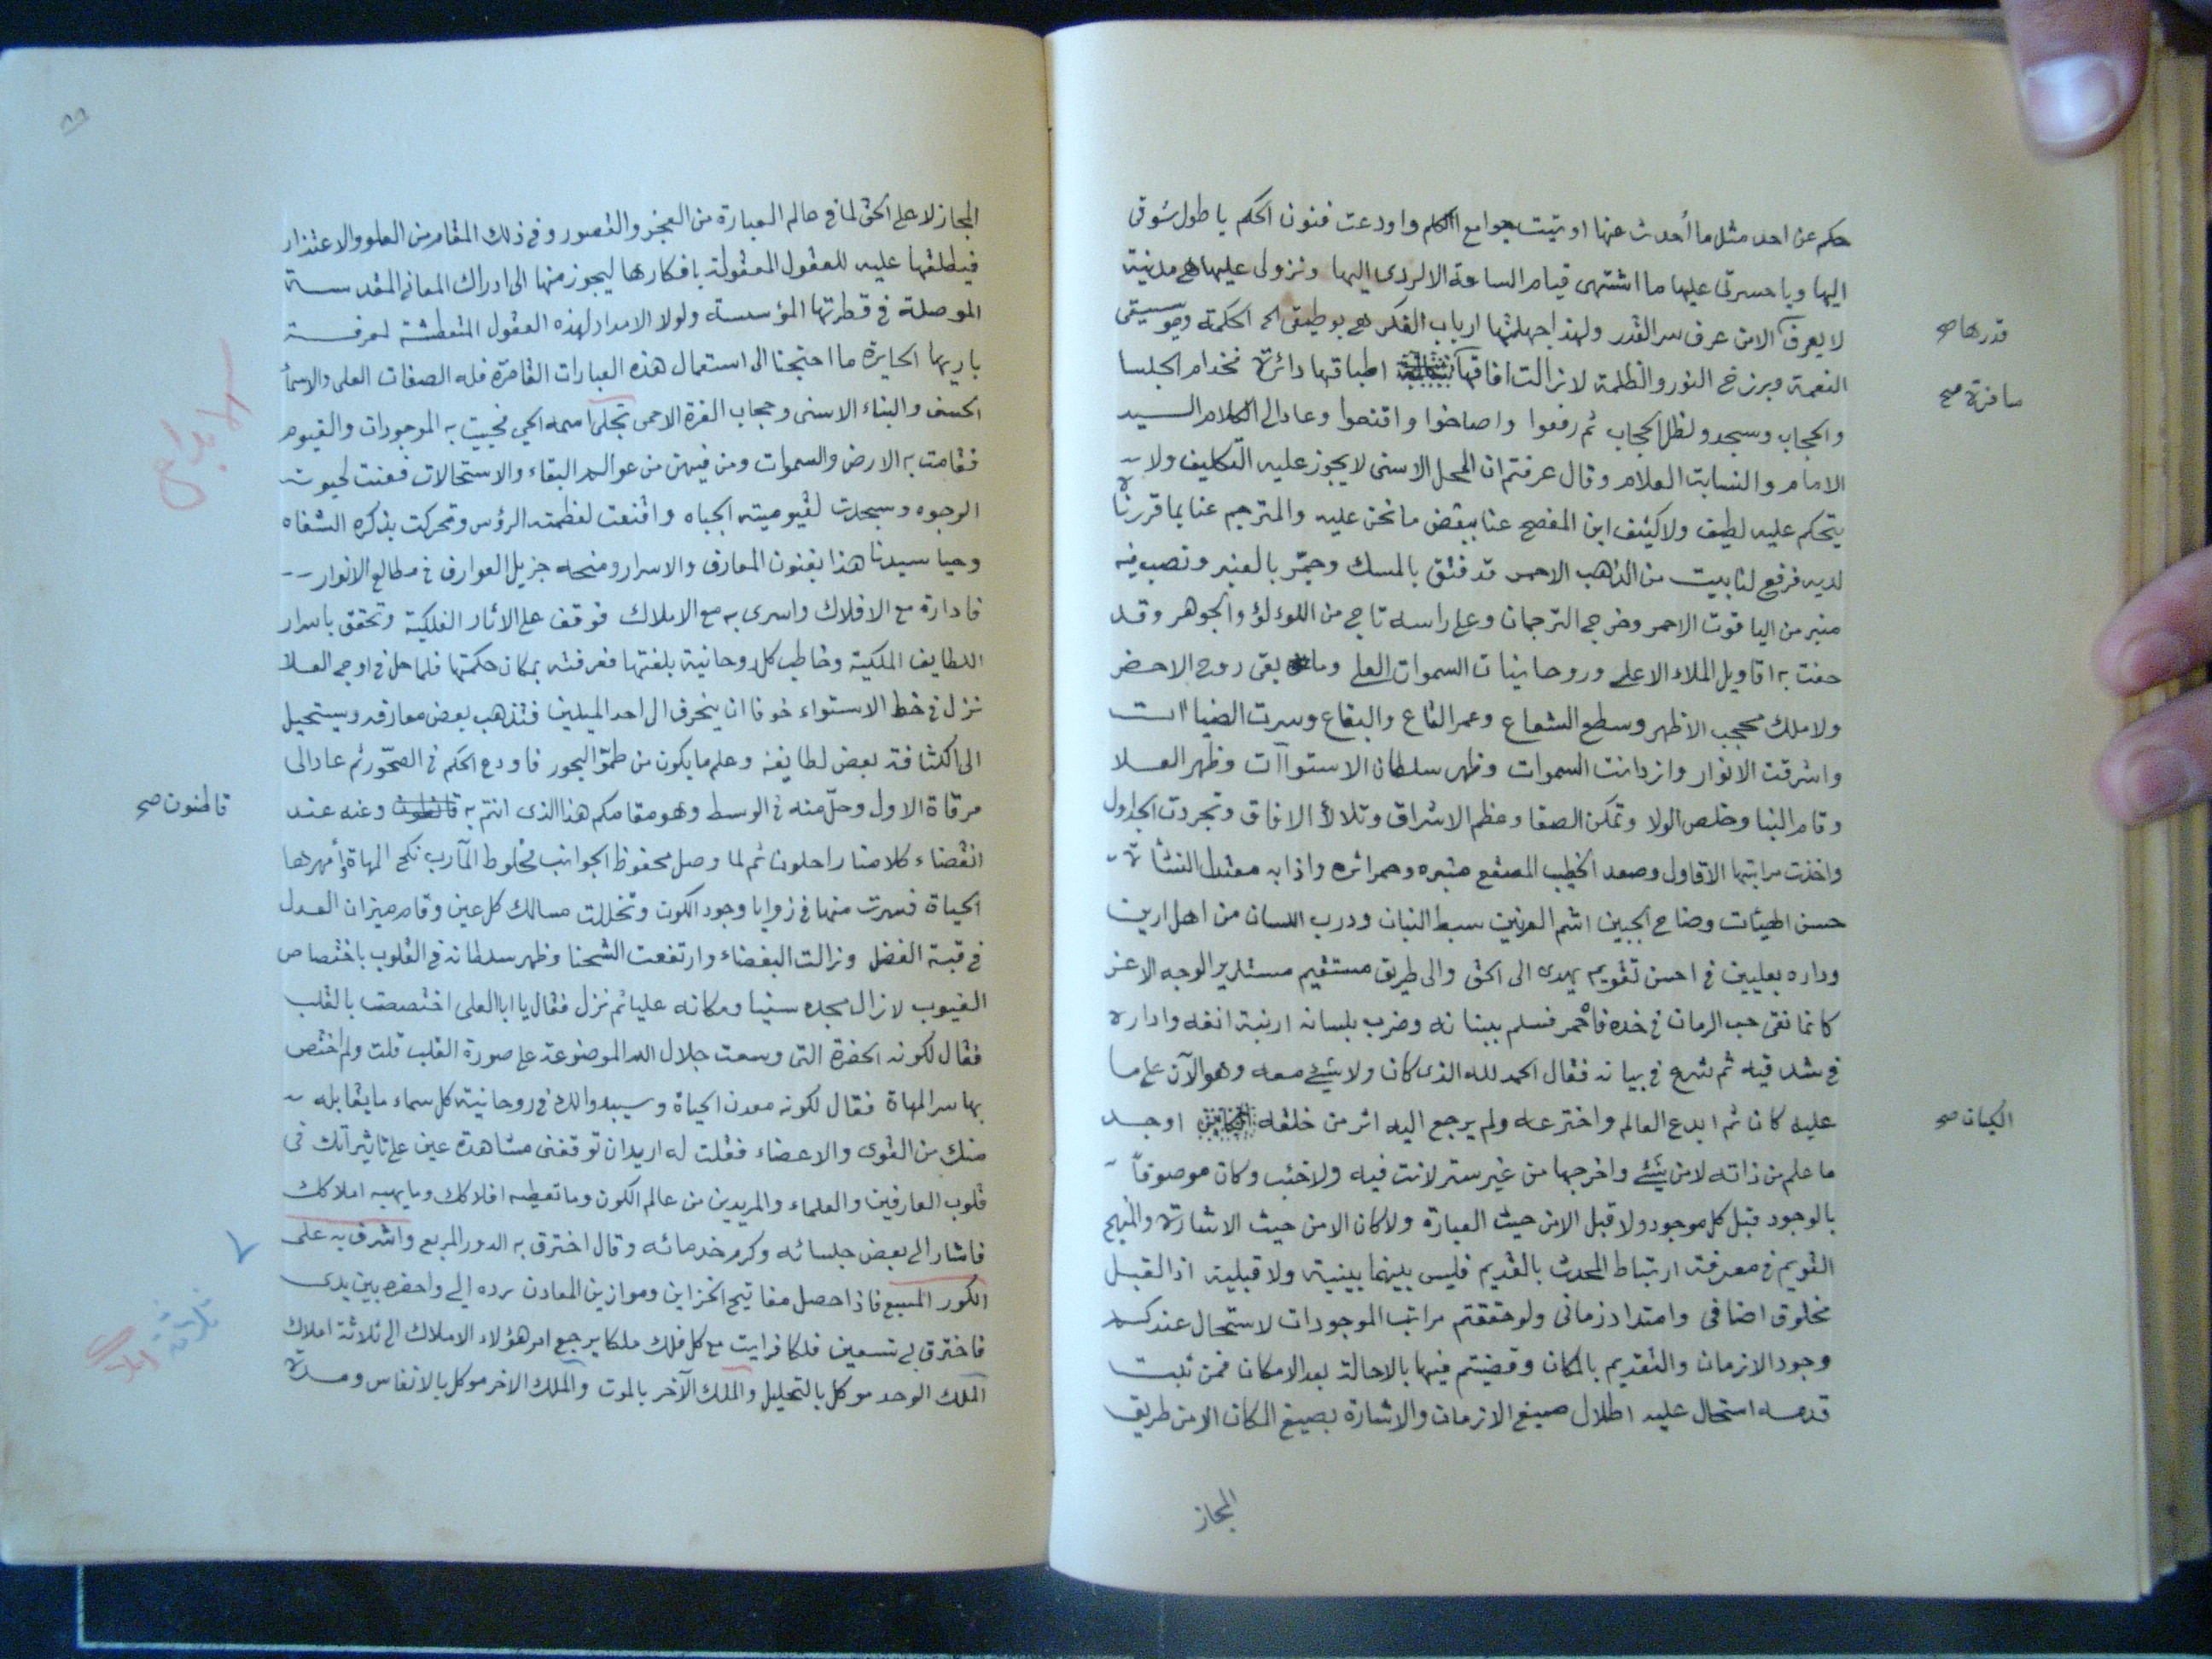 حكم عن احد مثل ما أحدث عنها اوتيت جوامع الكلم واودعت فنون الحكم يا طول شوقى
اليها ويا حسرتى عليها ما اشتهى قيام الساعة الا لردى اليها ونزولى عليها هى مدينة
لا يعرف الا من عرف سر القدر ولهذا جهلتها ارباب الفكر هى بوطيقى الحكمة وموسيقى
قدرها صح
النعمة وبرزخ النور والظلمة لا زالت افاقها اطباقها دائرة فخدام الجلسا
سافرة صح
والحجاب وسجدو لظل الحجاب ثم رفعوا واصاخوا واقنعوا وعاد الى الكلام السيد
الامام والنسابة العلام وقال عرفتم ان المحل الاسنى لا يجوز عليه التكليف ولا
يتحكم عليه لطيف ولا كثيف اين المفصح عنا ببعض ما نحن عليه والمترجم عنا بما قررنا
لديه فرفع لنا بيت من الذهب الاحمر قد فتق بالمسك وجمّر بالعنبر ونصب فيه
منبر من الياقوت الاحمر وخرج الترجمان وعلى راسه تاج من اللؤلؤ والجوهر وقد
حفت به اقاويل الملاء الاعلى وروحانيات السموات العلى وما بقى روح الاحضر
ولا ملك محجب الا ظهر وسطع الشعاع وعمر القاع والبقاع وسرت الضياات
واشرقت الانوار وازدانت السموات وظهر سلطان الاستواآت وظهر العلا
وقام البنا وخلص الولا وتمكن الصفا وعظم الاشراق وتلالأ الافاق وتجردت الجداول
واخذت مراتبها الاقاول وصعد الخطيب المصقع منبره وحمر اثره واذا به معتدل النشأة
حسن الهيئات وضاح الجبين اشم العرنين سبط البنان ودرب اللسان من اهل ارين
وداره بعليين فى احسن تقويم يهدى الى الحق والى طريق مستقيم مستدير الوجه الاغر
كانما نقى حب الرمان فى خده فأحمر فسلم ببنانه وضرب بلسانه ارنبة انفه واداره
فى شدقيه ثم شرع فى بيانه فقال الحمد لله الذى كان ولا شئ معه وهو الآن على ما
عليه كان ثم ابدع العالم واخترعه ولم يرجع اليه اثر من خلقه اوجد
الكيان صح
ما علم من ذاته لا من شئ واخرجها من غير ستر لانت فيه ولا خئب وكان موصوفاً
بالوجود قبل كل موجود ولا قبل الا من حيث العبارة ولا كان الا من حيث الاشارة والمنهج
القويم فى معرفة ارتباط المحدث بالقديم فليس بينهما بينية ولا قبلية اذ القبل
مخلوق اضافى وامتداد زمانى ولو حققتم مراتب الموجودات لاستحال عندكم
وجود الازمان والتقديم بالمكان وقضيتم فيها بالاحالة بعد الامكان فمن ثبت
قدمه استحال عليه اطلال صيغ الازمان والاشارة بصيغ المكان الا من طريق
المجاز
المجاز لا على الحق لما فى عالم العبارة من العجز والقصور وفى ذلك المقام من العلو والاعتذار
فيطلقها عليه للعقول المعقولة بافكارها ليجوز منها الى ادراك المعانى المقدسة
الموصلة فى قطرتها المؤسسة ولولا الامداد لهذه العقول المتعطشة لمعرفة
باريها الحايرة ما احتجنا الى استعمال هذه العبارات القاصرة فله الصفات العلى والاسمأ
الحسنى والبناء الاسنى وحجاب العزة الاحمى تجلى اسمه الحي فحييت به الموجودات والقيوم
فقامت به الارض والسموات ومن فيهن من عوالم البقاء والاستحالات فعنت لحيوته
الوجوه وسجدت لقيوميته الجباه واقنعت لعظمته الرؤس وتحركت بذكره الشفاه
وحيا سيدنا هذا بفنون المعارف والاسرار ومنحه جزيل العوارف فى مطالع الانوار
فادارة مع الافلاك واسرى به مع الاملاك فوقف على الأثار الفلكية وتحقق باسرار
اللطايف الملكية وخاطب كل روحانية بلغتها فعرفته بمكان حكمتها فلما حل فى اوج العلا
نزل فى خط الاستواء خوفا ان ينحرف الى احد الميلين فتذهب بعض معارفه ويستحيل
الى اكثافة بعض لطايفه وعلم ما يكون من طموّ البحور فاودع الحكم فى الصخور ثم عاد الى
مرقاة الاول وحلّ منه فى الوسط وهو مقامكم هذا الذى انتم به وعنه عند
قاطنون صح
انقضاء كلامنا راحلون ثم لما وصل محفوظ الجوانب مخلوط المآرب نكح المهاة وأمهرها
الحياة فسرت منها فى زوايا وجود الكون وتخللت مسالك كل عين وقام ميزان العدل
فى قبة الفضل وزالت البغضاء وارتفعت الشحنا وظهر سلطانه فى القلوب باختصاص
الغيوب لا زال مجده سنيا ومكانه عليا ثم نزل فقال يا ابا العلى اختصصت بالقلب
فقال لكونه الحضرة التى وسعت جلال الله الموضوعة على صورة القلب قلت ولم اختص
بها سر المهاة فقال لكونه معدن الحياة وسيبدو لك فى روحانية كل سماء ما يقابله
منك من القوى والاعضاء فقلت له اريد ان توقفنى مشاهدة عين على تاثيراتك فى
قلوب العارفين والعلماء والمريدين من عالم الكون وما تعطيه افلاكك وما يهبه املاكك
فاشار الى بعض جلسائه وكرم خدمائه وقال اخترق به الدور المربع واشرف به على
الكور المسبع فاذا حصل مفاتيح الخزاين وموازين المعادن رده الى واحضره بين يدى
فاخترق بى تسعين فلكا فرايت مع كل فلك ملكا يرجع امر هؤلاء الاملاك الى ثلاثة املاك
الملك الوحد موكل بالتحليل والملك الآخر بالموت والملك الاخر موكل بالانفاس ومدة